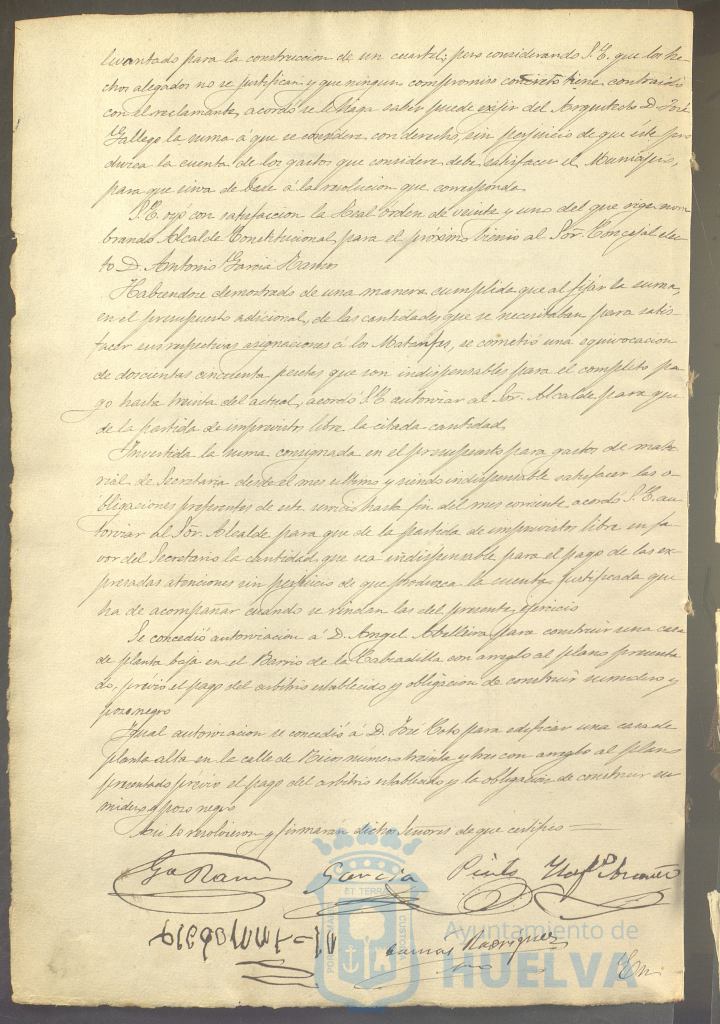 levantado para la construccion de un cuartel; pero considerando S. E. que los he-
chos alegados no se justifican y que ningun compromiso concreto tiene contraido
con el reclamante, acordó se le haga saber puede exijir del Arquitecto D. José
Gallego la suma á que se considere con derecho, sin perjuicio de que éste pro
duzca la cuenta de los gastos que considere debe satisfacer el Municipio,
para que sirva de base á la resolucion que corresponda
S. E. oyó con satisfaccion la Real órden de veinte y uno del que rige nom
brando Alcalde Constitucional para el próximo bienio al Sor. Concejal elec-
to D. Antonio Garcia Ramos
Habiendose demostrado de una manera cumplida que al fijar la suma,
en el presupuesto adicional, de las cantidades que se necesitaban para satis-
facer sus respectivas asignaciones á los Matarifes, se cometió una equivocacion
de doscientas cincuenta pesetas que son indispensables para el completo pa-
go hasta treinta del actual, acordó S. E. autorizar al Sor. Alcalde para que
de la partida de imprevistos libre la citada cantidad
Invertida la suma consignada en el presupuesto para gastos de mate-
rial de Secretaria desde el mes ultimo y siendo indispensable satisfacer las o-
bligaciones preferentes de este servicio hasta fin del mes corriente, acordó S. E. au-
torizar al Sor. Alcalde para que de la partida de imprevistos libre en fa-
vor del Secretario la cantidad que sea indispensable para el pago de las ex-
presadas atenciones sin perjuicio de que produzca la cuenta justificada que
ha de acompañar cuando se rindan las del presente ejercicio
Se concedió autorizacion á D. Angel Abelleira para construir una casa
de planta baja en el Barrio de la con arreglo al plano presenta
do, previo el pago del arbitrio establecido y obligacion de construir sumidero y
pozo negro
Igual autorizacion se concedió á D. José Coto para edificar una casa de
planta alta en la calle de Rico número treinta y tres con arreglo al plano
presentado previo el pago del arbitrio establecido y la obligacion de construir su
midero y pozo negro
Asi lo resolvieron y firmarán dichos Señores de que certifico =
Ga Ramos García Pinto
Rodriguez
En
Ayuntamiento de
HUELVA